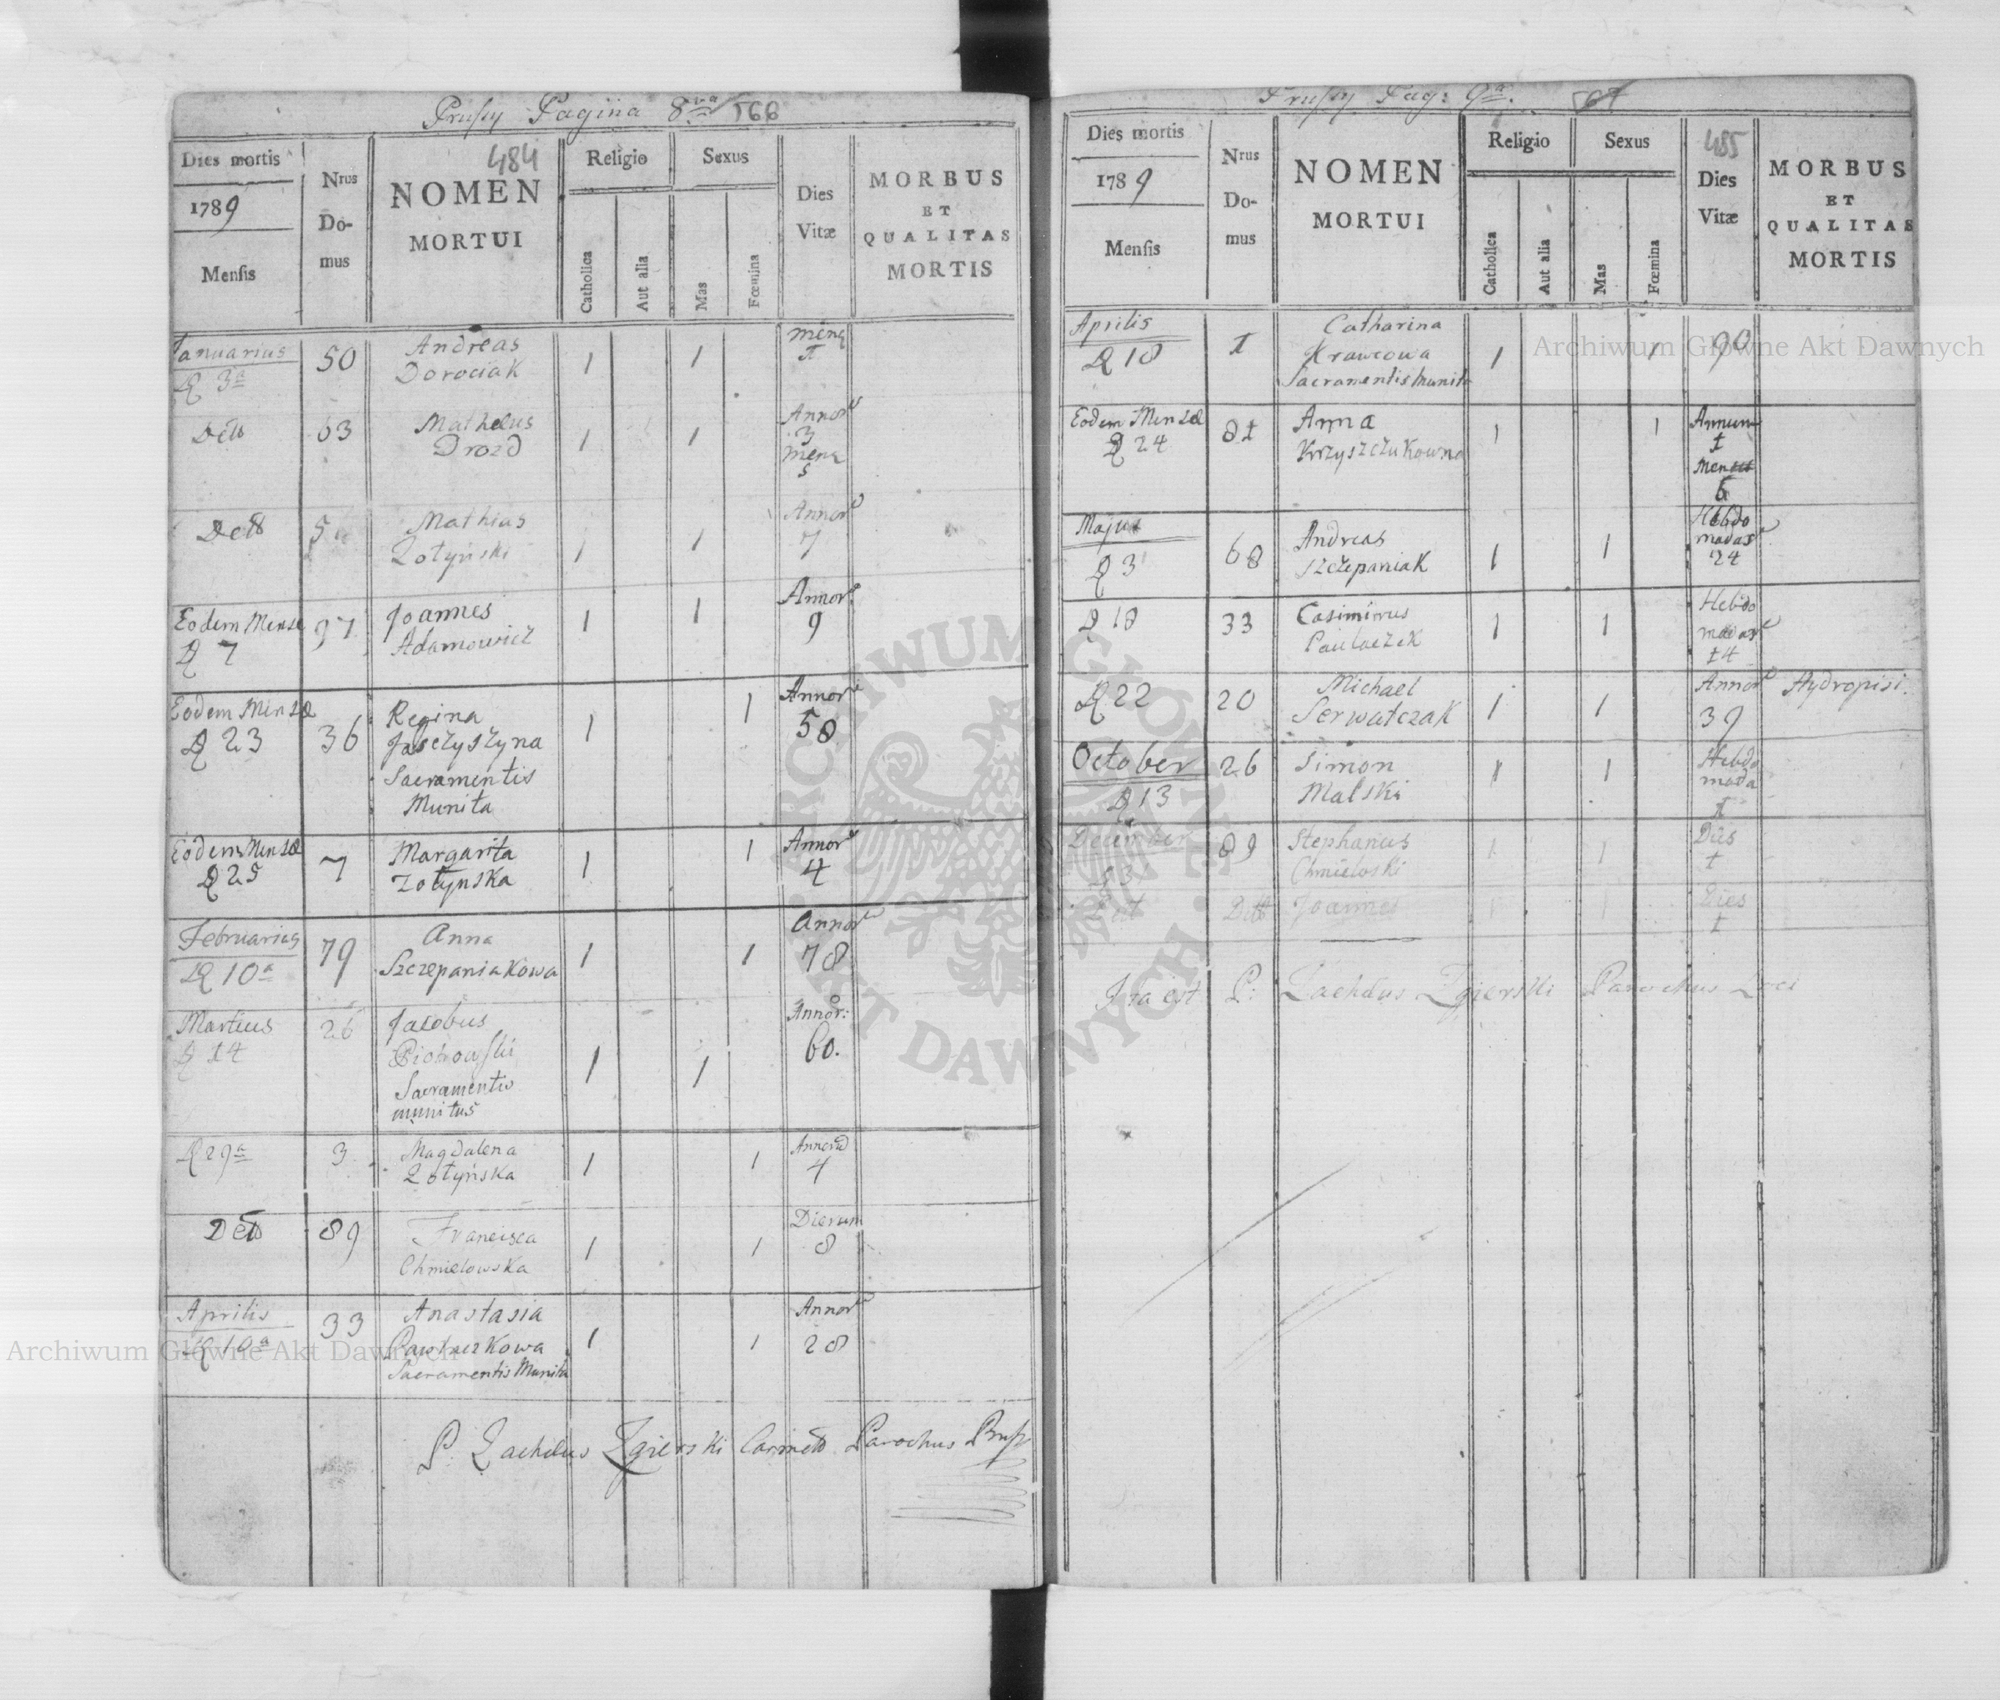 Prussy Pagina 8va 566
484
Dies mortis
1789
Mensis
Nrus
Do-
mus
NOMEN
MORTUI
Religio
Catholica
Aut alia
Sexus
Mas
Fœmina
Dies
Vitæ
MORBUS
ET
QUALITAS
MORTIS
Januarius 50 Andreas 1 1 mens
D 3a Dorociak 1
Detto 63 Matheus 1 1 Annor
Drozd 3
mens
5
Detto 5 Mathias 1 1 Annor
Zołyński 7
Eodem Mense 97 Joannes 1 1 Annor
D 7 Adamowicz 9
Eodem Mense 36 Regina 1 1 Annor
D 23 Jasczyszyna 58
Sacramentis
Munita
Eodem Mense 7 Margarita 1 1 Annor
D 25 Zołynska 4
Februarius 79 Anna 1 1 Annor
D 10a Szczepaniakowa 78
Martius 26 Jacobus 1 1 Annor:
D 14 Piotrowski 60.
Sacramentis
munitus
D 29a 3 Magdalena 1 1 Annor
Zołyńska 4
Detto 89 Francisca 1 1 Dierum
Chmielowska 8
Aprilis 33 Anastasia 1 1 Annor
D 10a Pawlaczkowa 28
Sacramentis Munita
P. Zgierski Parochus
Prussy Pag: 9a. 567
485
Dies mortis
1789
Mensis
Nrus
Do-
mus
NOMEN
MORTUI
Religio
Catholica
Aut alia
Sexus
Mas
Fœmina
Dies
Vitæ
MORBUS
ET
QUALITAS
MORTIS
Aprilis 1 Catharina 1 1 90
D 18 Krawcowa
Sacramentis Munita
Eodem Mense 81 Anna 1 1 Annum
D 24 Krzyszczukowna 1
Mens
6
Majus 68 Andreas 1 1 Hebdo
D 3 Szczepaniak madar
24
D 18 33 Casimirus 1 1 Hebdo
Pawlaczek madar
14
D 22 20 Michael 1 1 Annor Hydropisi.
Serwatczak 39
October 26 Simon 1 1 Hebdo
D 13 Malski mada
1
December 89 Stephanus 1 1 Dies
D 3 Chmieloski 1
Det Ditto Joannes 1 1 Dies
1
Ita est P: Zgierski Parochus Loci
Archiwum Główne Akt Dawnych
Archiwum Główne Akt Dawnych
ARCHIWUM GŁÓWNE AKT DAWNYCH